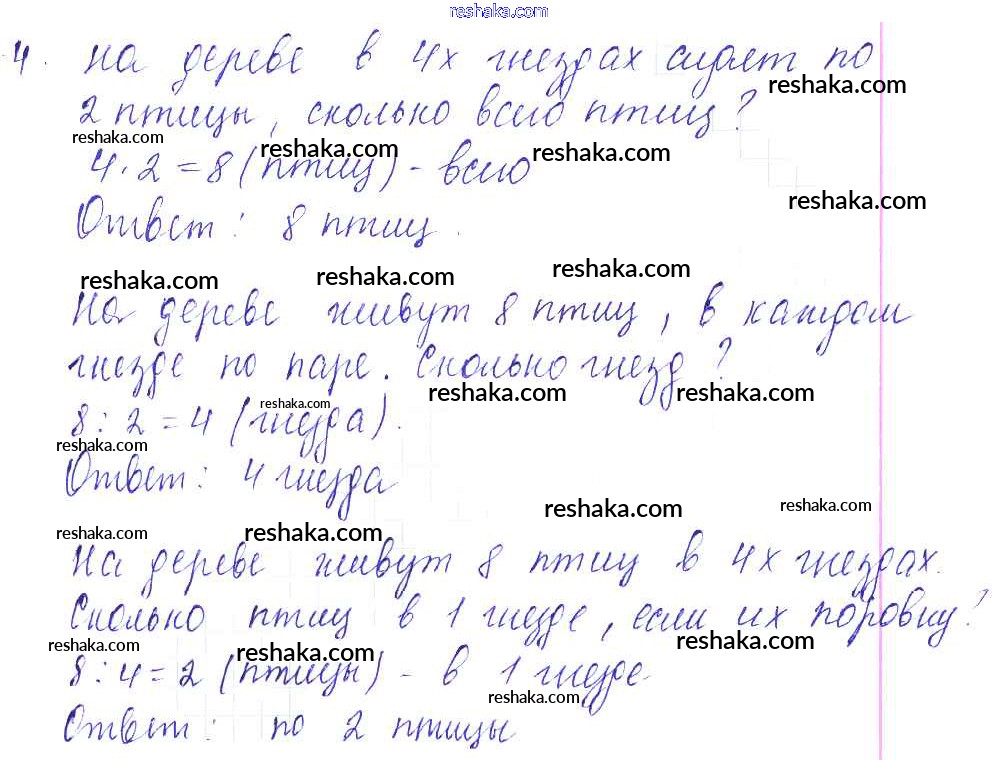 reshaka.com
4. На дереве в 4х гнездах сидят по
reshaka.com
2 птицы, сколько всего птиц?
reshaka.com reshaka.com reshaka.com
4 · 2 = 8 (птиц) - всего
reshaka.com
Ответ: 8 птиц.
reshaka.com reshaka.com reshaka.com
На дереве живут 8 птиц, в каждом
гнезде по паре. Сколько гнезд?
reshaka.com reshaka.com reshaka.com
8 : 2 = 4 (гнезда).
reshaka.com
Ответ: 4 гнезда
reshaka.com reshaka.com reshaka.com reshaka.com
На дереве живут 8 птиц в 4х гнездах.
Сколько птиц в 1 гнезде, если их поровну?
reshaka.com reshaka.com reshaka.com
8 : 4 = 2 (птицы) - в 1 гнезде
reshaka.com
Ответ: по 2 птицы